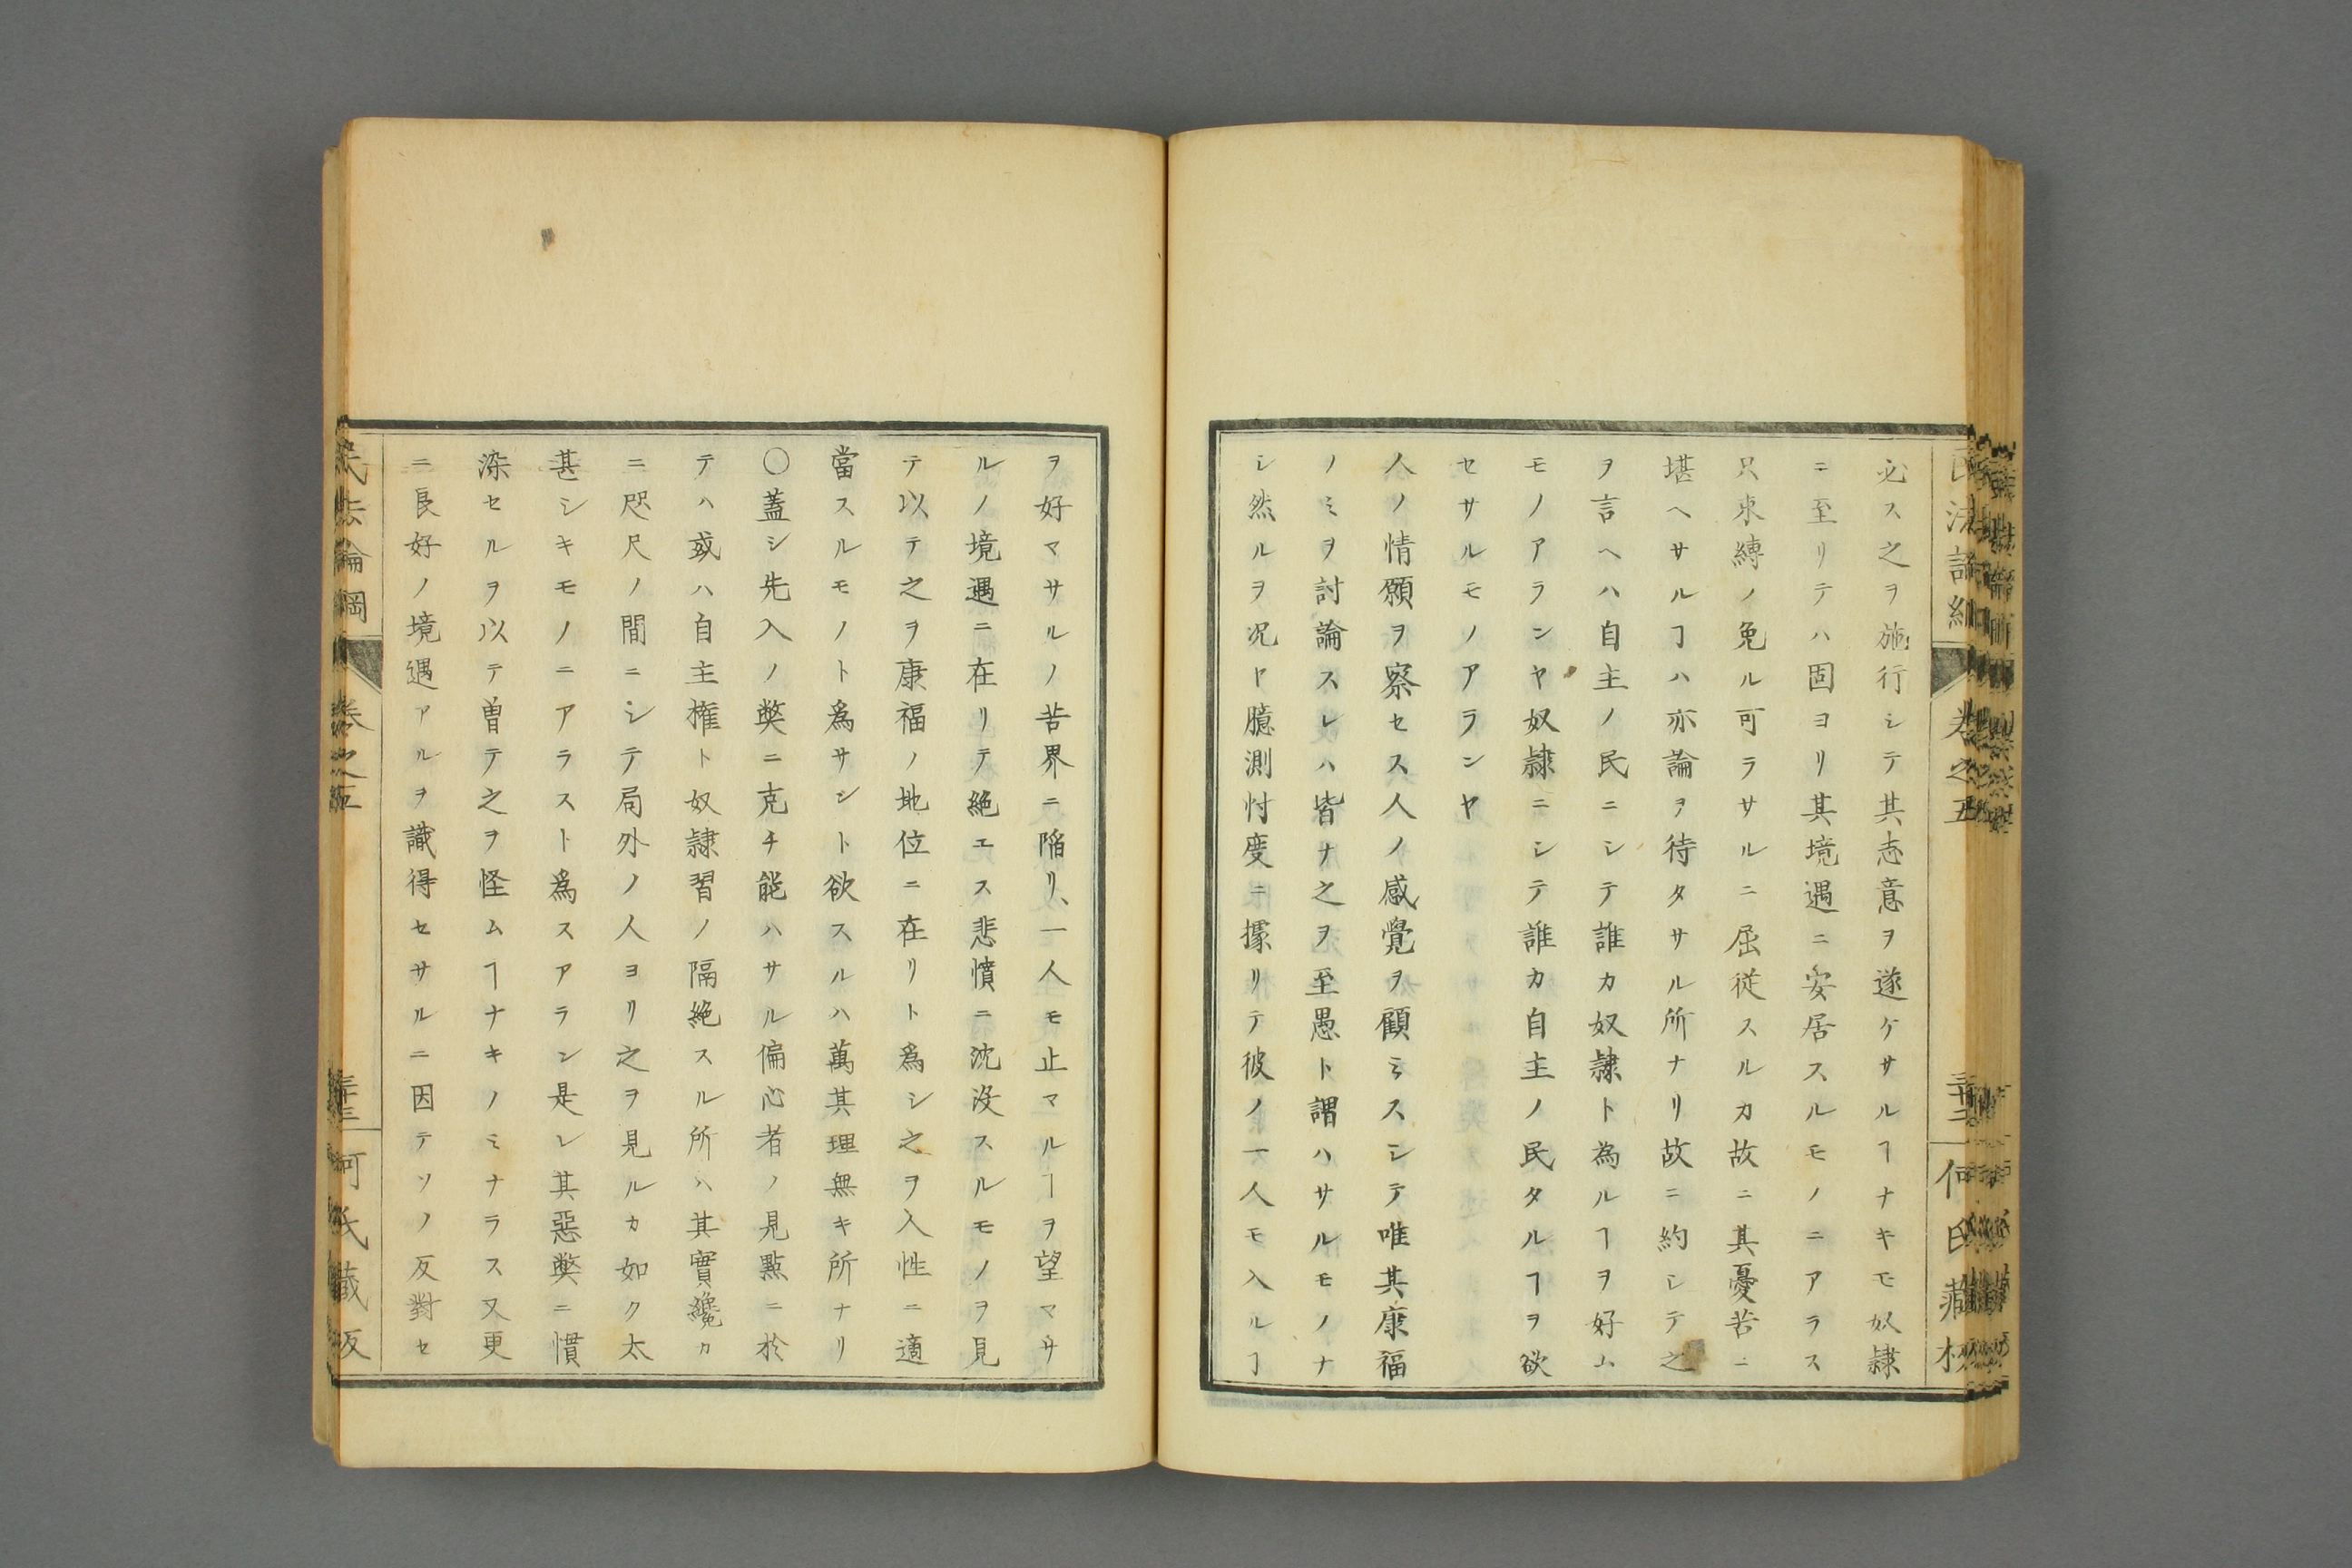 必ス之ヲ施行シテ其志意ヲ遂ケサルヿナキモ奴隷
ニ至リテハ固ヨリ其境遇ニ安居スルモノニアラス
只束縛ノ免ル可ラサルニ屈従スルカ故ニ其憂苦ニ
堪ヘサルヿハ亦論ヲ待タサル所ナリ故ニ約シテ之
ヲ言ヘハ自主ノ民ニシテ誰カ奴隷ト為ルヿヲ好ム
モノアランヤ奴隷ニシテ誰カ自主ノ民タルヿヲ欲
セサルモノアランヤ
人ノ情願ヲ察セス人ノ感覺ヲ顧ミスシテ唯其康福
ノミヲ討論スレハ皆ナ之ヲ至愚ト謂ハサルモノナ
シ然ルヲ况ヤ臆測忖度ニ據リテ彼ノ一人モ入ルヿ
民法論綱
卷之五
三十二
何氏藏板
ヲ好マサルノ苦界ニ陥リ、一人モ止マルヿヲ望マサ
ルノ境遇ニ在リテ絶エス悲憤ニ沈沒スルモノヲ見
テ以テ之ヲ康福ノ地位ニ在リト爲シ之ヲ入性ニ適
當スルモノト爲サント欲スルハ萬其理無キ所ナリ
〇蓋シ先入ノ弊ニ克チ能ハサル偏心者ノ見㸃ニ於
テハ或ハ自主權ト奴隷習ノ隔絶スル所ハ其實纔カ
ニ咫尺ノ間ニシテ局外ノ人ヨリ之ヲ見ルカ如ク太
甚シキモノニアラスト爲スアラン是レ其惡弊ニ慣
染セルヲ以テ曽テ之ヲ怪ムヿナキノミナラス又更
ニ良好ノ境遇アルヲ識得セサルニ因テソノ反對セ
民法論綱
卷之五
三十三
何氏藏板